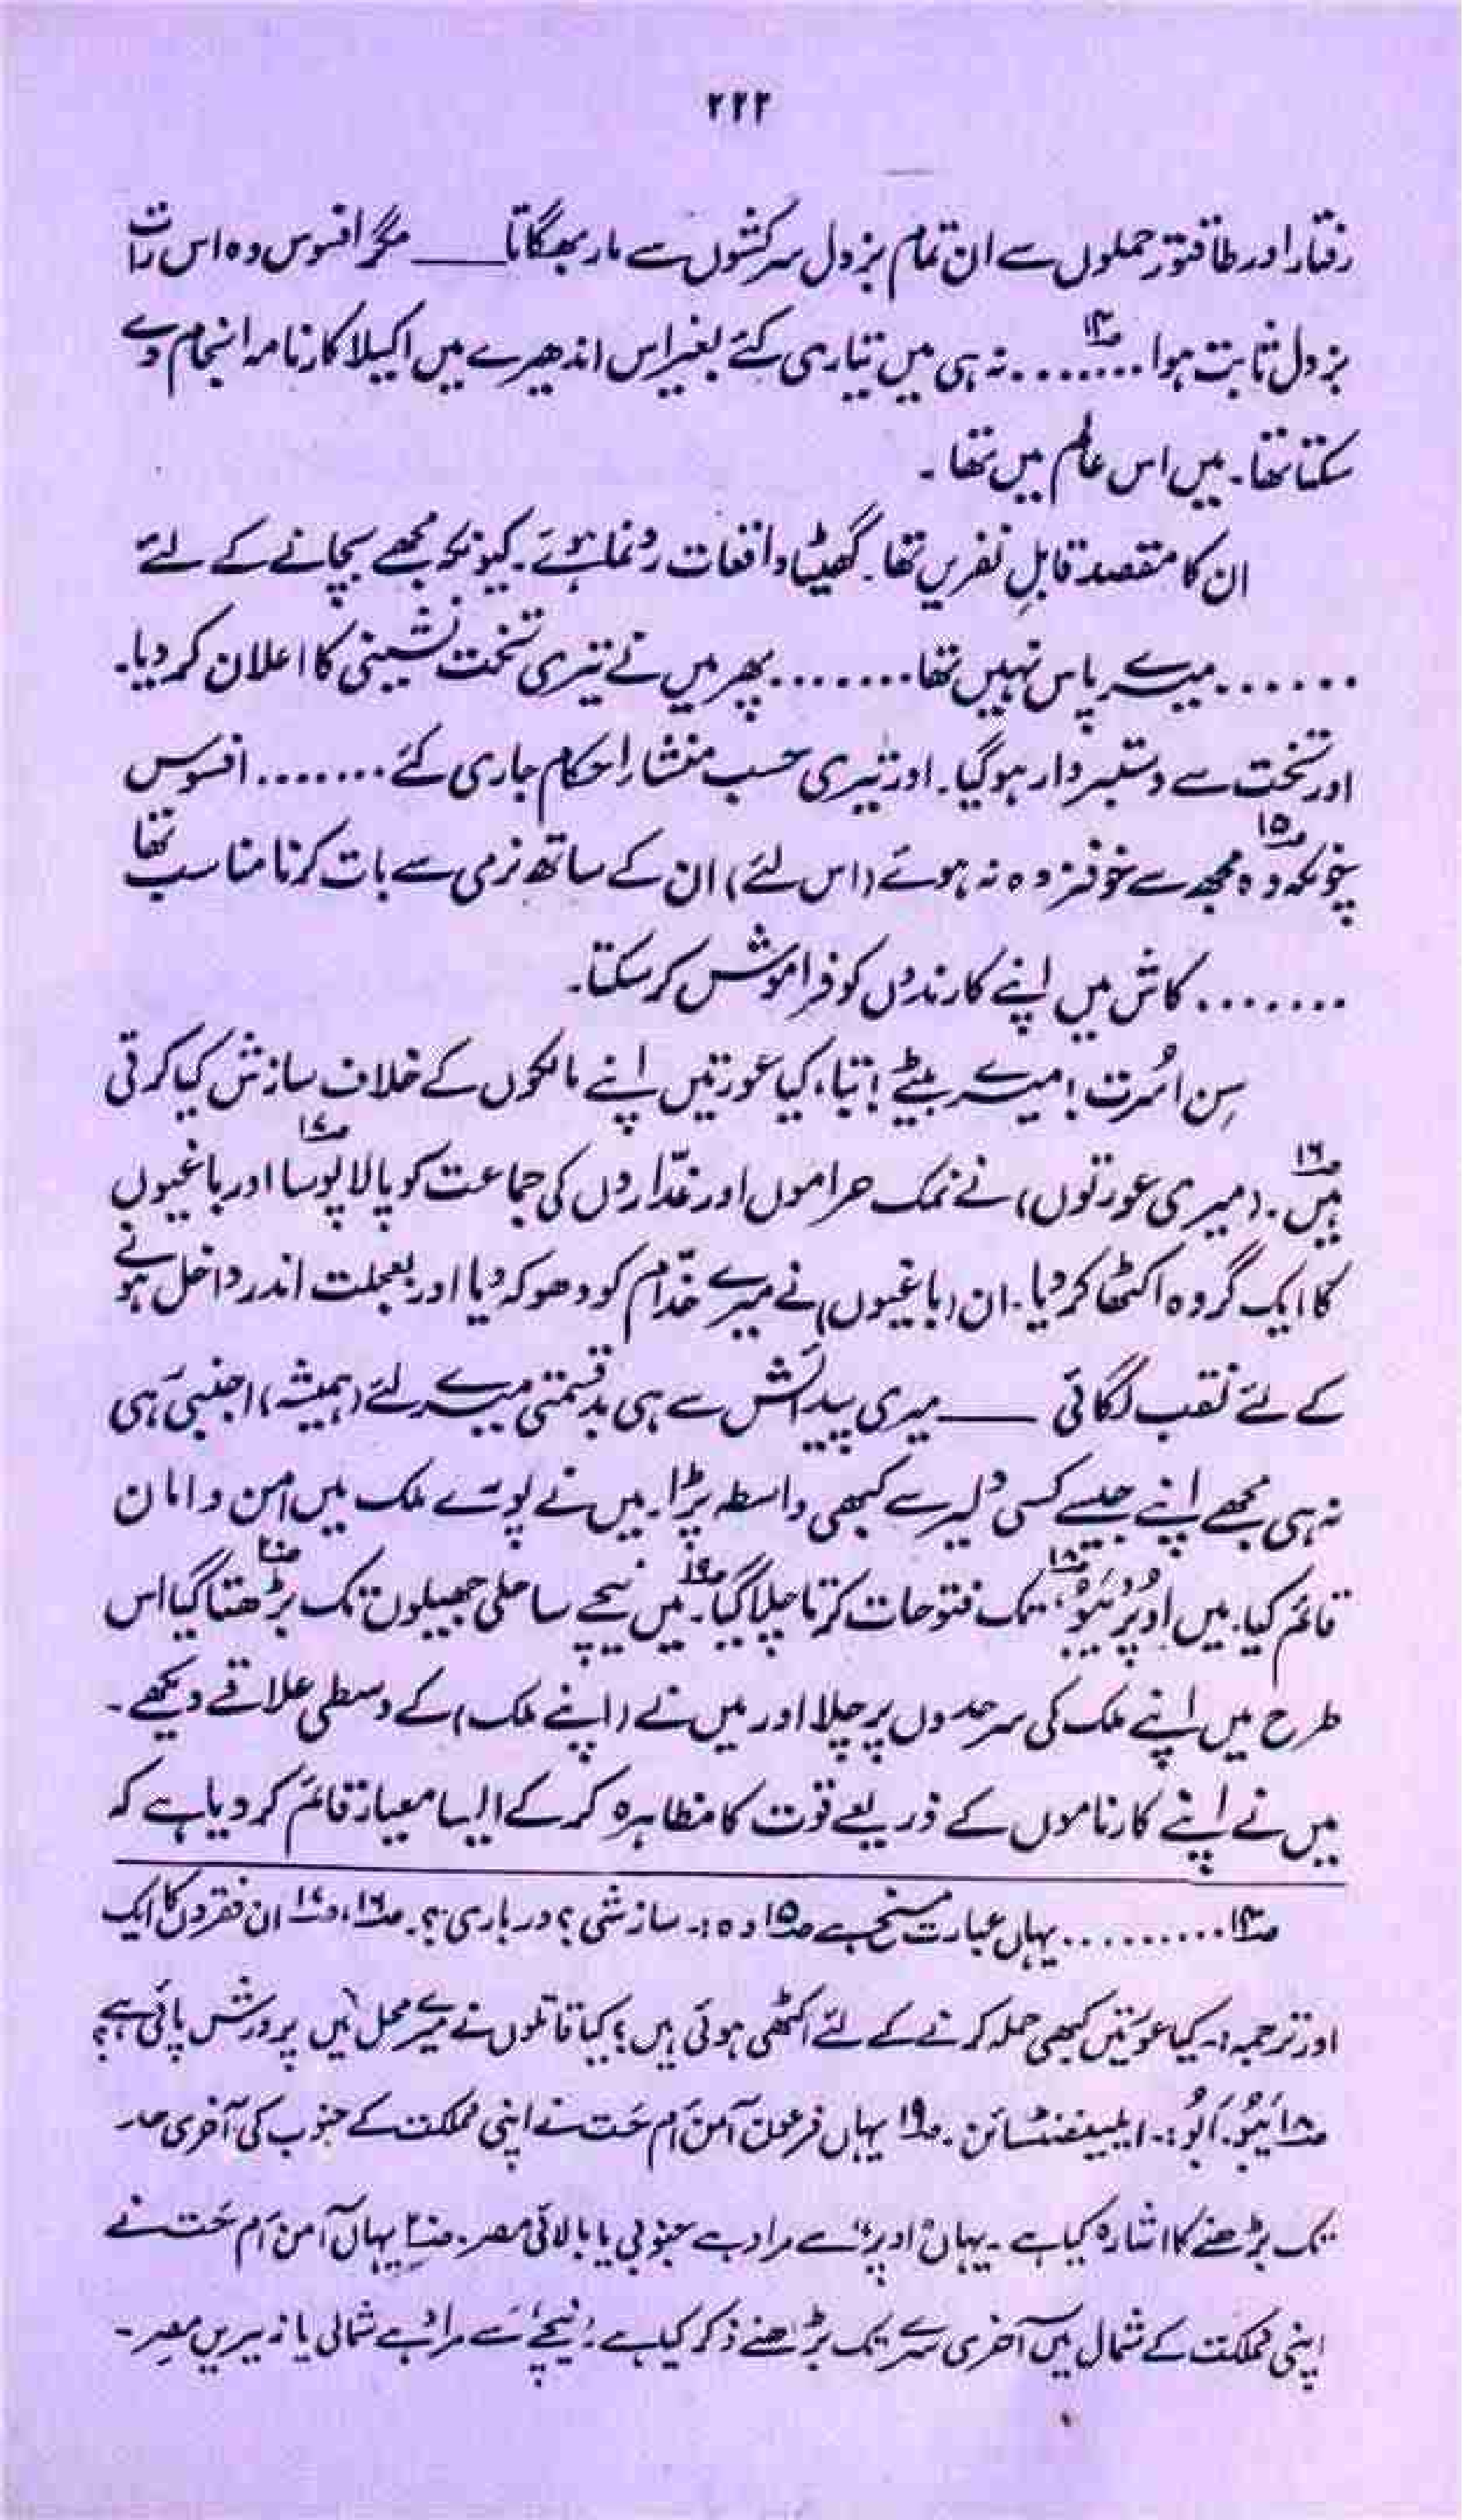 ۲۲۲
رفتار اور طاقتور حملوں سے ان تمام بزدل سرکشوں سے مار بھگاتا ــــ مگر افسوس وہ اس رات
بزدل ثابت ہوا ۱۴؎ ....... نہ ہی میں تیاری کئے بغیر اس اندھیرے میں اکیلا کارنامہ انجام دے
سکتا تھا۔ میں اس عالم میں تھا۔
ان کا مقصد قابلِ نفریں تھا۔ گھٹیا واقعات رونما ہوئے۔ کیونکہ مجھے بچانے کے لئے
....... میرے پاس نہیں تھا ....... پھر میں نے تیری تخت نشینی کا اعلان کر دیا۔
اور تخت سے دستبردار ہوگیا۔ اور تیری حسب منشار احکام جاری کئے ....... افسوس
چونکہ وہ ۱۵؎ مجھ سے خوفزدہ نہ ہوئے (اس لئے) ان کے ساتھ نرمی سے بات کرنا مناسب تھا
....... کاش میں اپنے کارندوں کو فراموش کر سکتا۔
سِن اسُرت! میرے بیٹے! بتا، کیا عورتیں اپنے مالکوں کے خلاف سازش کیا کرتی
ہیں ۱۶؎۔ (میری عورتوں) نے نمک حراموں اور غدّاروں کی جماعت کو پالا پوسا ۱۷؎ اور باغیوں
کا ایک گروہ اکٹھا کر دیا۔ ان (باغیوں) نے میرے خدّام کو دھوکہ دیا اور بعجلت اندر داخل ہونے
کے لئے نقب لگائی ــــ میری پیدائش سے ہی بدقسمتی میرے لئے (ہمیشہ) اجنبی رہی
نہ ہی مجھے اپنے جیسے کسی دلیر سے کبھی واسطہ پڑا۔ میں نے پورے ملک میں امن و امان
قائم کیا۔ میں اوپر ۱۸؎ تک فتوحات کرتا چلا گیا ۱۹؎۔ میں نیچے ساحلی جھیلوں تک ۲۰؎ بڑھتا گیا اس
طرح میں اپنے ملک کی سرحدوں پر چلا اور میں نے (اپنے ملک) کے وسطی علاقے دیکھے۔
میں نے اپنے کارناموں کے ذریعے قوت کا مظاہرہ کر کے ایسا معیار قائم کر دیا ہے کہ
۱۴؎ ......... یہاں عبارت مسخ ہے ۱۵؎ وہ :۔ سازشی؟ درباری؟۔ ۱۶؎، ۱۷؎ ان فقروں کا ایک
اور ترجمہ:۔ کیا عورتیں کبھی حملہ کرنے کے لئے اکٹھی ہوئی ہیں؟ کیا قاتلوں نے میرے محل میں پرورش پائی ہے؟
۱۸؎ :۔ ایلیفنٹائن۔ ۱۹؎ یہاں فرعون آمن اَم حَت نے اپنی مملکت کے جنوب کی آخری حد
تک بڑھنے کا اشارہ کیا ہے۔ یہاں "اوپر" سے مراد ہے جنوبی یا بالائی مصر۔ ۲۰؎ یہاں آمن اَم حَت نے
اپنی مملکت کے شمال میں آخری سرے تک بڑھنے ذکر کیا ہے۔ "نیچے" سے مراد ہے شمالی یا زیریں مصر۔